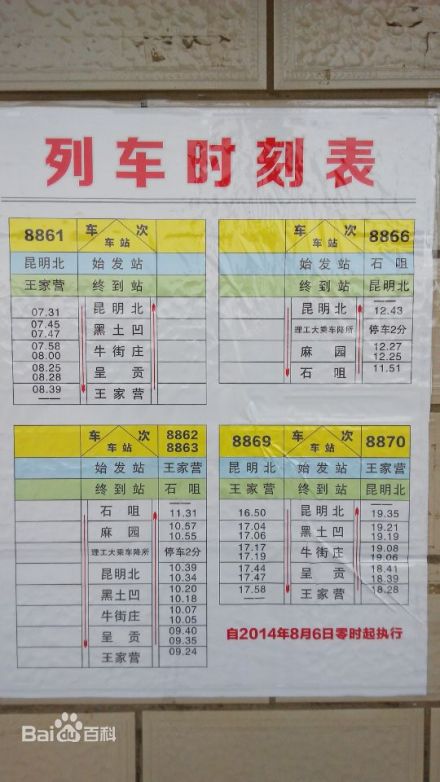 列车时刻表
8861 车次 车站
昆明北 始发站
王家营 终到站
07.31 昆明北
07.45 07.47 黑土凹
07.58 08.00 牛街庄
08.25 08.28 呈贡
08.39 王家营
车次 车站 8866
始发站 石咀
终到站 昆明北
昆明北 12.43
理工大乘车降所 停车2分
麻园 12.27 12.25
石咀 11.51
车次 车站 8862 8863
始发站 王家营
终到站 石咀
石咀 11.31
麻园 10.57 10.55
理工大乘车降所 停车2分
昆明北 10.39 10.34
黑土凹 10.20 10.18
牛街庄 10.07 10.05
呈贡 09.40 09.35
王家营 09.24
8869 车次 车站 8870
昆明北 始发站 王家营
王家营 终到站 昆明北
16.50 昆明北 19.35
17.04 17.06 黑土凹 19.21 19.19
17.17 17.19 牛街庄 19.08 19.06
17.44 17.47 呈贡 18.41 18.39
17.58 王家营 18.28
自2014年8月6日零时起执行
Bai du 百科